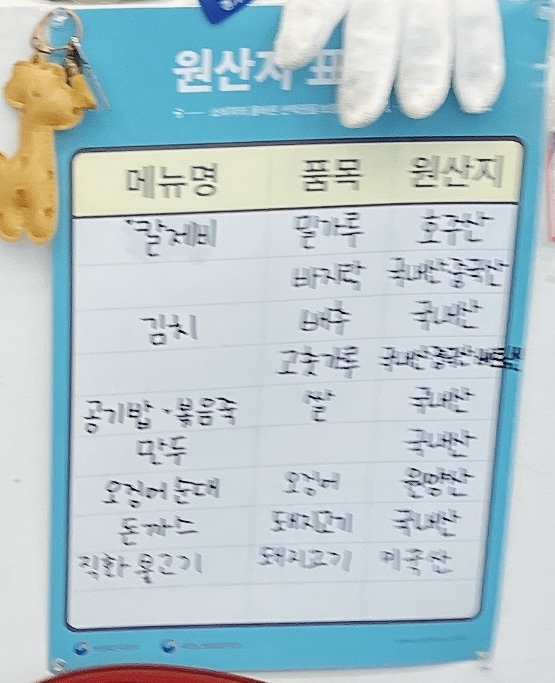 원산지 표
메뉴명 품목 원산지
칼제비 밀가루 호주산
바지락 국내산 중국산
김치 배추 국내산
고춧가루 국내산 중국산 베트남산
공기밥·볶음죽 쌀 국내산
만두 국내산
오징어순대 오징어 원양산
돈까스 돼지고기 국내산
직화불고기 돼지고기 미국산